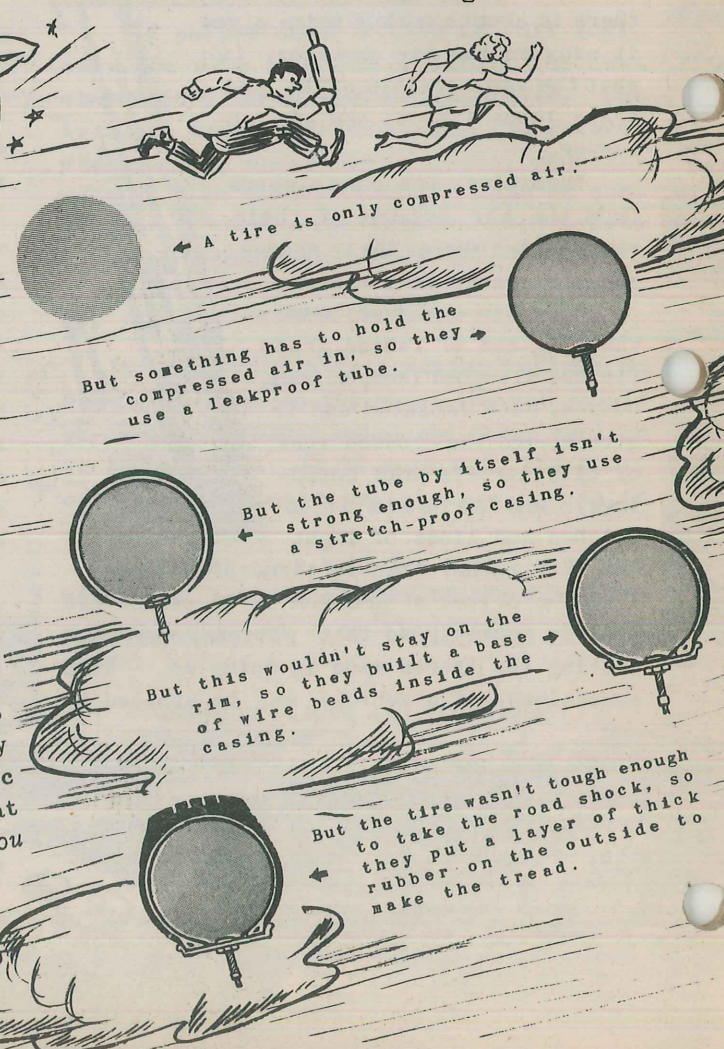 A tire is only compressed air.
But something has to hold the
compressed air in, so they
use a leakproof tube.
But the tube by itself isn't
strong enough, so they use
a stretch-proof casing.
But this wouldn't stay on the
rim, so they built a base
of wire beads inside the
casing.
y
c
at
ou
But the tire wasn't tough enough
to take the road shock, so
they put a layer of thick
rubber on the outside to
make the tread.